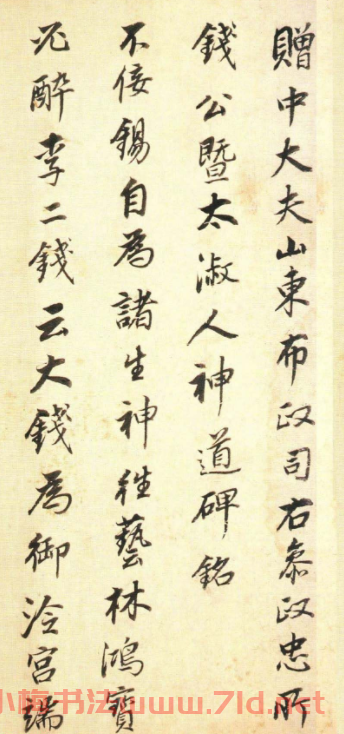 贈中大夫山東布政司右叅政忠所
錢公暨太淑人神道碑銘
不佞錫自為諸生神徃藝林鴻寳
沉酔李二錢云大錢為御冷宫端
小梅书法www.7ld.net